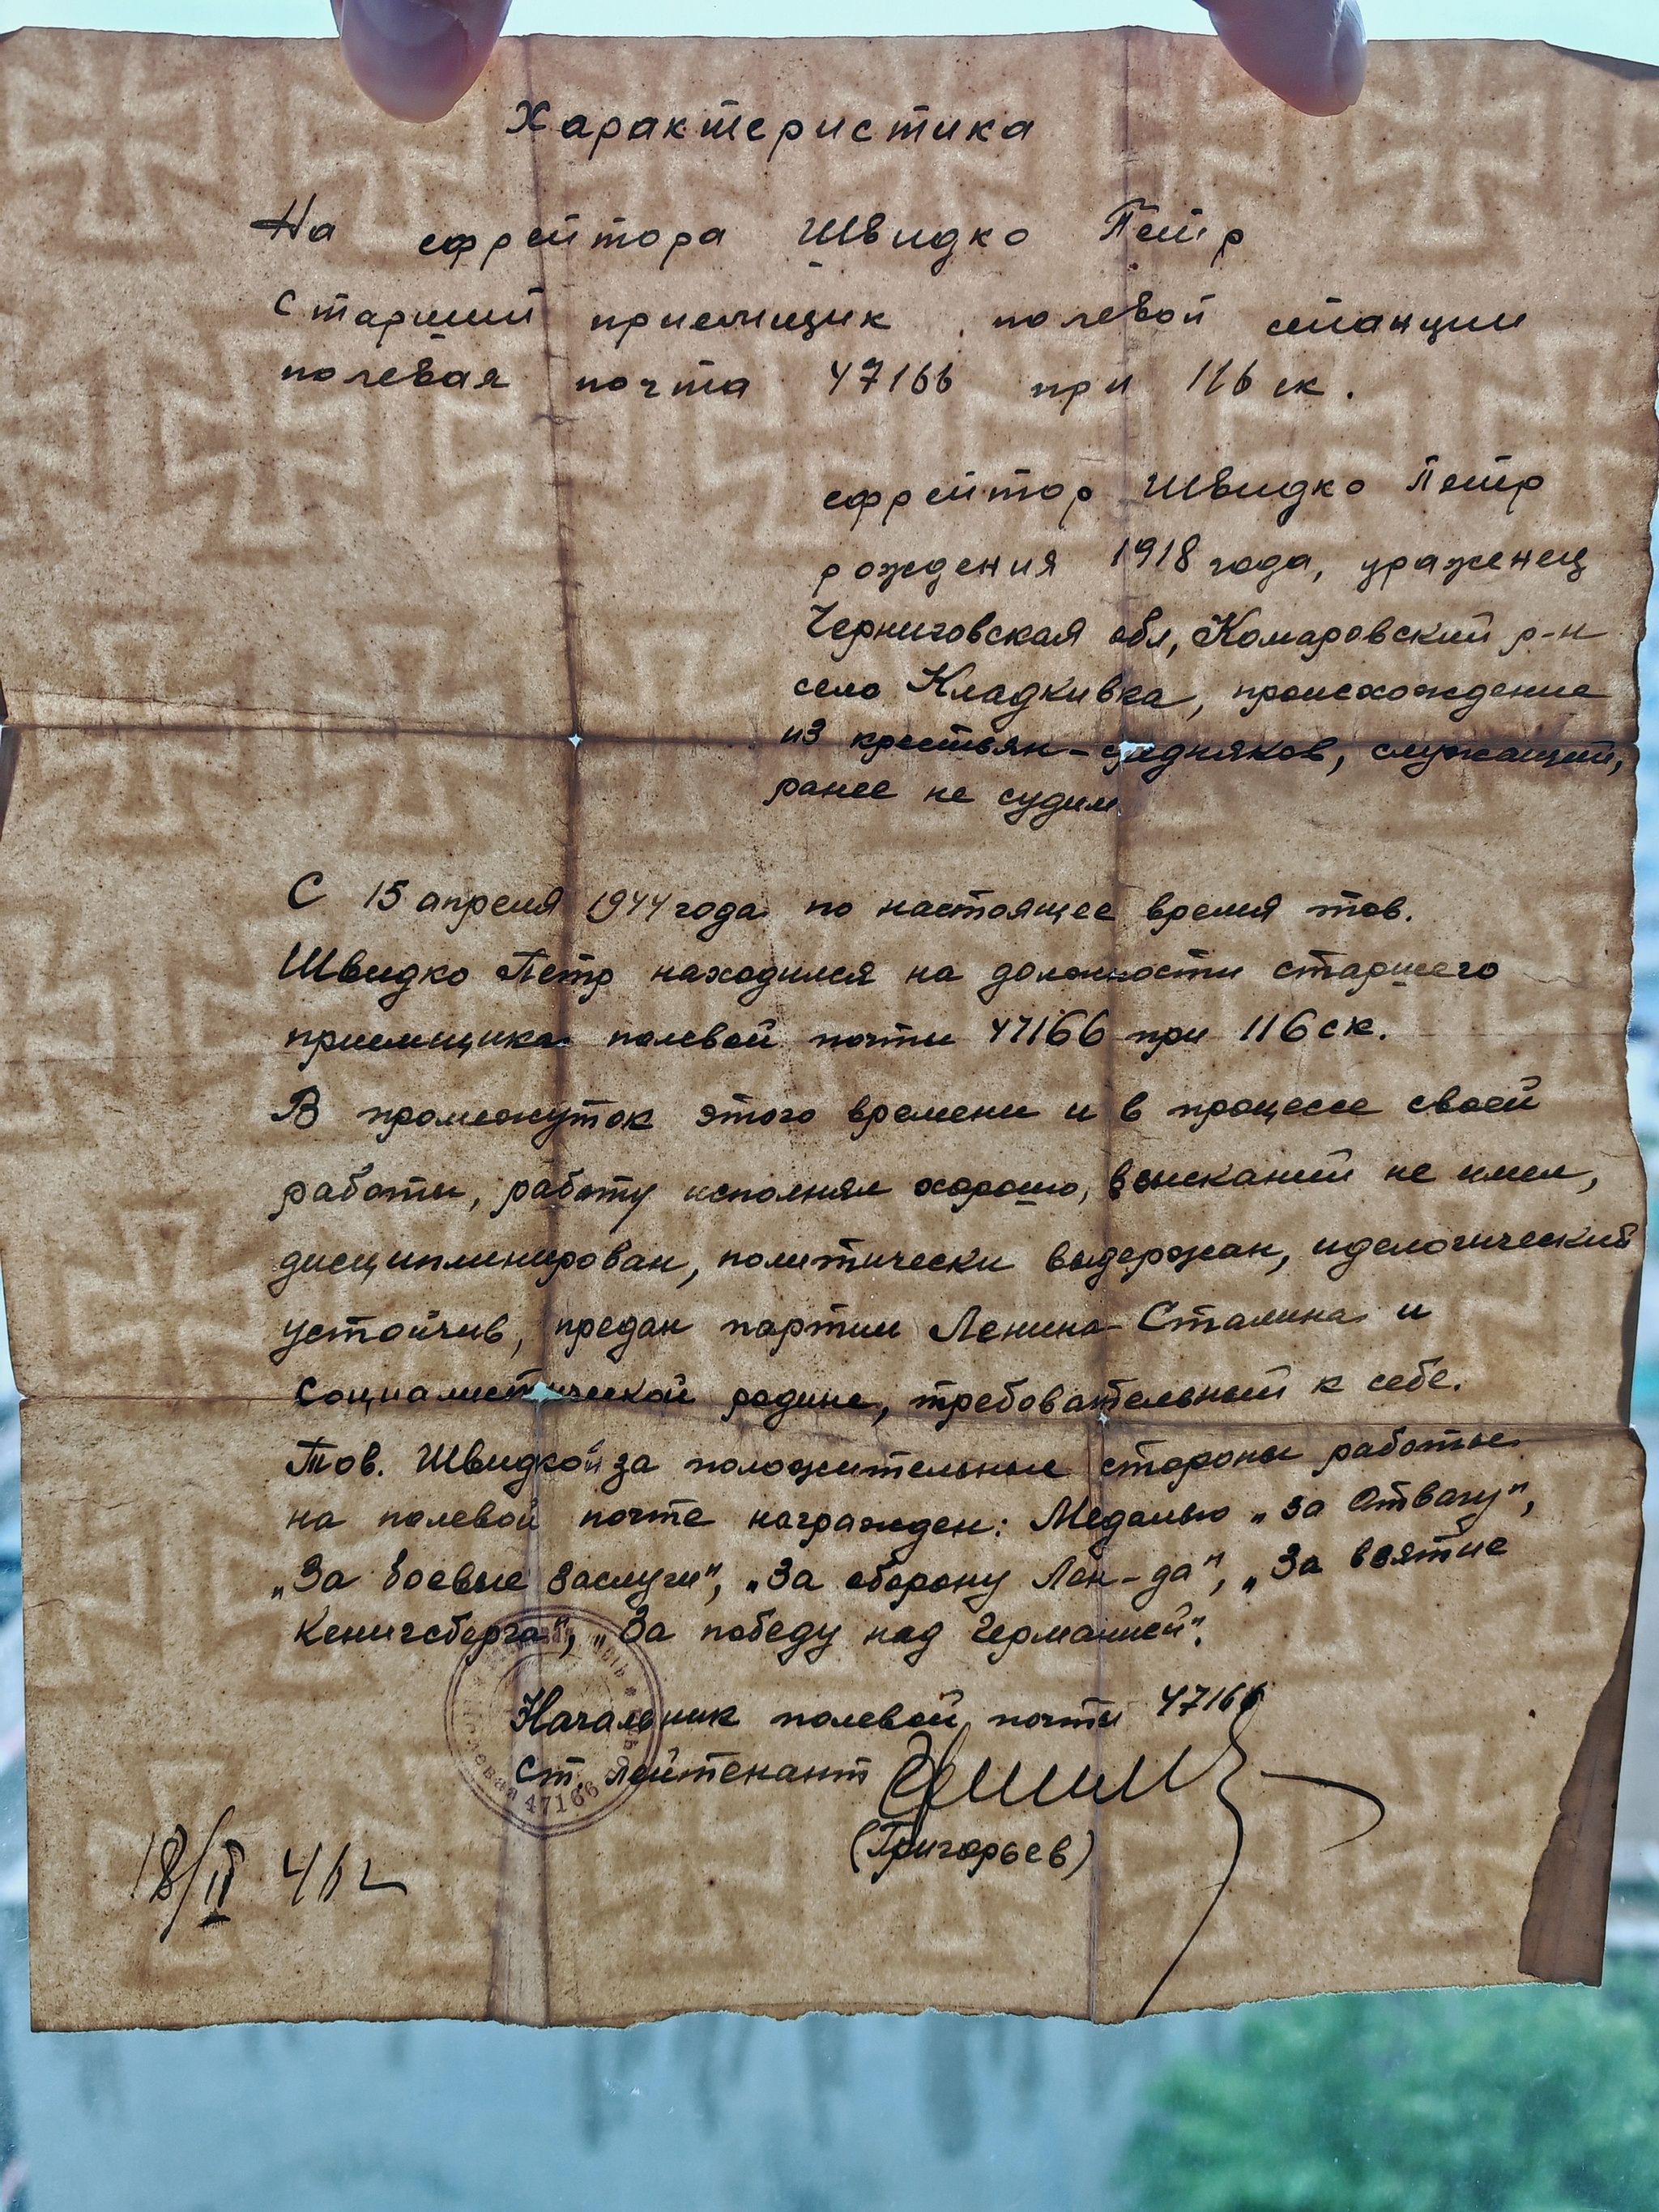 Характеристика
На ефрейтора Швидко Петр
Старший приемщик полевой станции
полевая почта 47166 при 116 ск.
ефрейтор Швидко Петр
рождения 1918 года, ураженец
Черниговская обл, Комаровский р-н
село Кладкивка, происхождение
из крестьян-средняков, служащий,
ранее не судим
С 15 апреля 1944 года по настоящее время тов.
Швидко Петр находился на должности старшего
приемщика полевой почты 47166 при 116 ск.
В промежуток этого времени и в процессе своей
работы, работу исполнял хорошо, взысканий не имел,
дисциплинирован, политически выдержан, иделогический
устойчив, предан партии Ленина-Сталина и
Социалистической родине, требовательный к себе.
Тов. Швидкой за положительные стороны работы
на полевой почте награжден: Медалью „За Отвагу",
„За боевые заслуги", „За оборону Лен-да", „За взятие
Кенигсберга", „За победу над Германией".
Начальник полевой почты 47166
Ст. лейтенант
(Григорьев)
18/II 46 г
полевая 47166